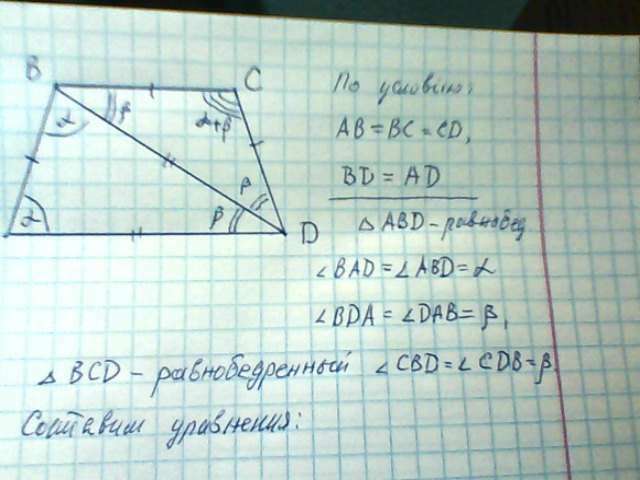 B
C
α
β
α+β
β
α
β
D
По условию:
AB = BC = CD,
BD = AD
△ ABD - равнобед
∠BAD = ∠ABD = α
∠BDA = ∠DAB = β,
△ BCD - равнобедренный ∠CBD = ∠CDB = β
Составим уравнения: